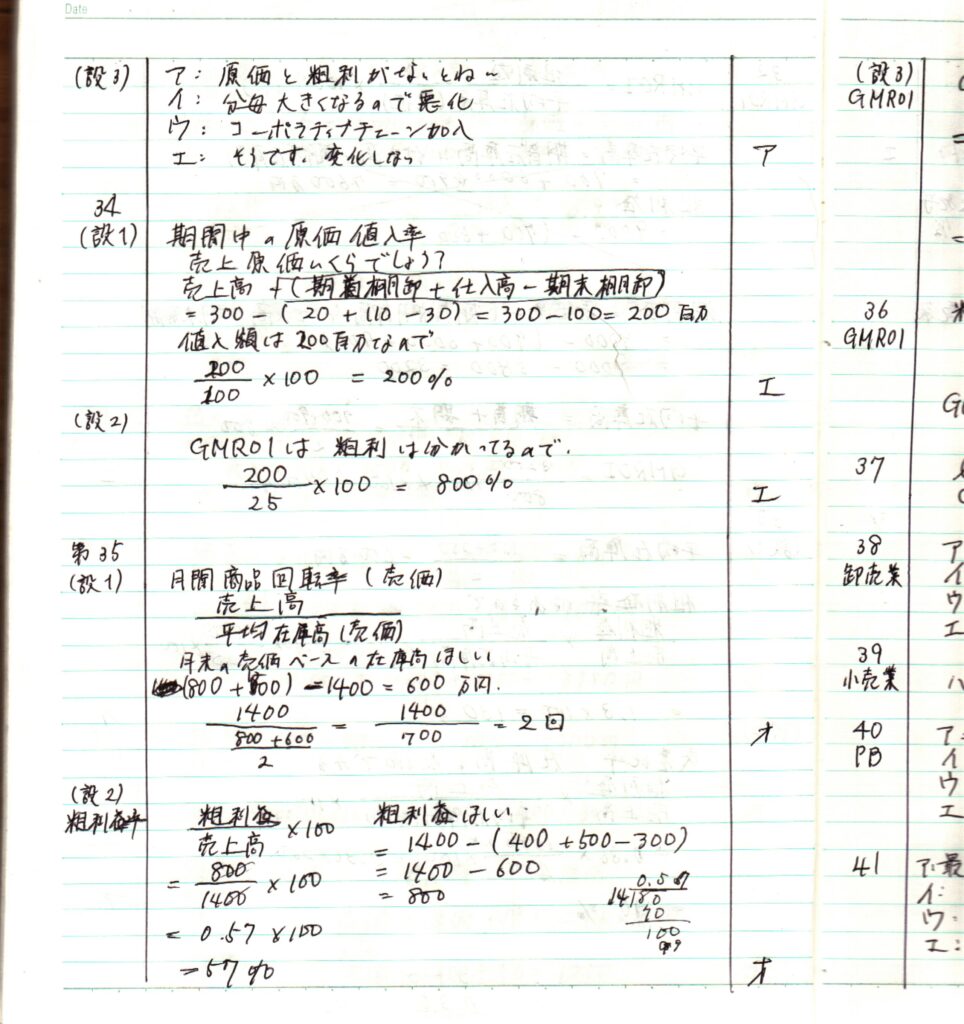 Date
(設3) ア: 原価と粗利がないとね〜
イ: 分母大きくなるので悪化
ウ: コーポラティブチェーン加入
エ: そうです。変化しなら
ア
34
(設1) 期間中の原価値入率
売上原価いくらでしょう?
売上高 + (期首棚卸 + 仕入高 - 期末棚卸)
= 300 - (20 + 110 - 30) = 300 - 100 = 200 百万
値入額は 200百万なので
200/100 × 100 = 200%
エ
(設2)
GMROIは 粗利は分かってるので、
200/25 × 100 = 800%
エ
第35
(設1) 月間商品回転率 (売価)
売上高/平均在庫高(売価)
月末の売価ベースの在庫高ほしい
(800 + 1200) - 1400 = 600 万円.
1400/((800+600)/2) = 1400/700 = 2回
オ
(設2)
粗利益率
粗利益/売上高 × 100 粗利益ほしい.
= 1400 - (400 + 500 - 300)
= 800/1400 × 100 = 1400 - 600
= 800
= 0.57 × 100
= 57%
オ
14 80
70
100
(設3)
GMROI
36
GMROI
37
38
卸売業
ア
イ
ウ
エ
39
小売業
ハ
40
PB
ア:
イ
ウ
エ
41
ア:最
イ:
ウ:
エ: